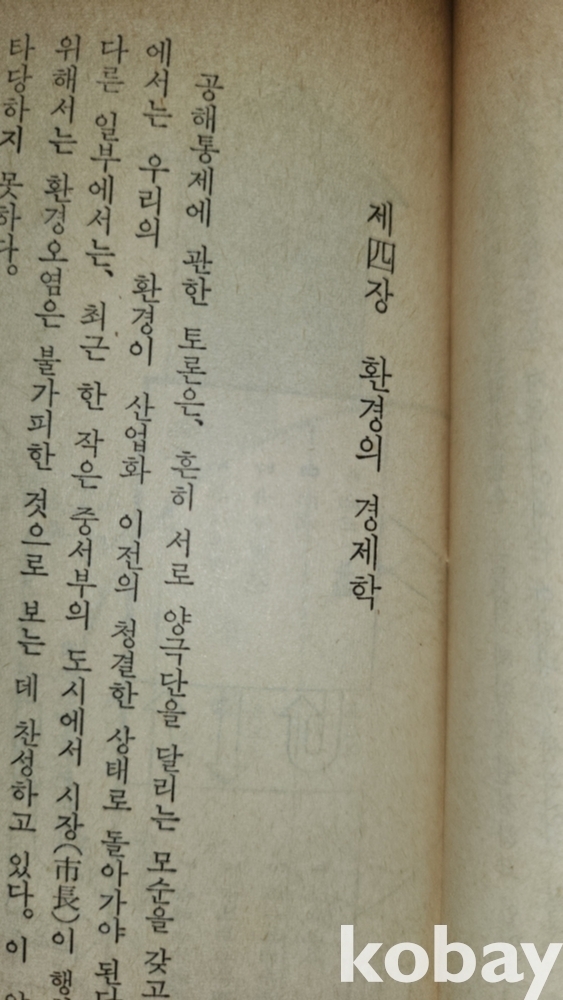 제四장 환경의 경제학
공해통제에 관한 토론은, 흔히 서로 양극단을 달리는 모순을 갖고
에서는 우리의 환경이 산업화 이전의 청결한 상태로 돌아가야 된다
다른 일부에서는, 최근 한 작은 중서부의 도시에서 시장(市長)이 행
위해서는 환경오염은 불가피한 것으로 보는 데 찬성하고 있다. 이
타당하지 못하다.
kobay